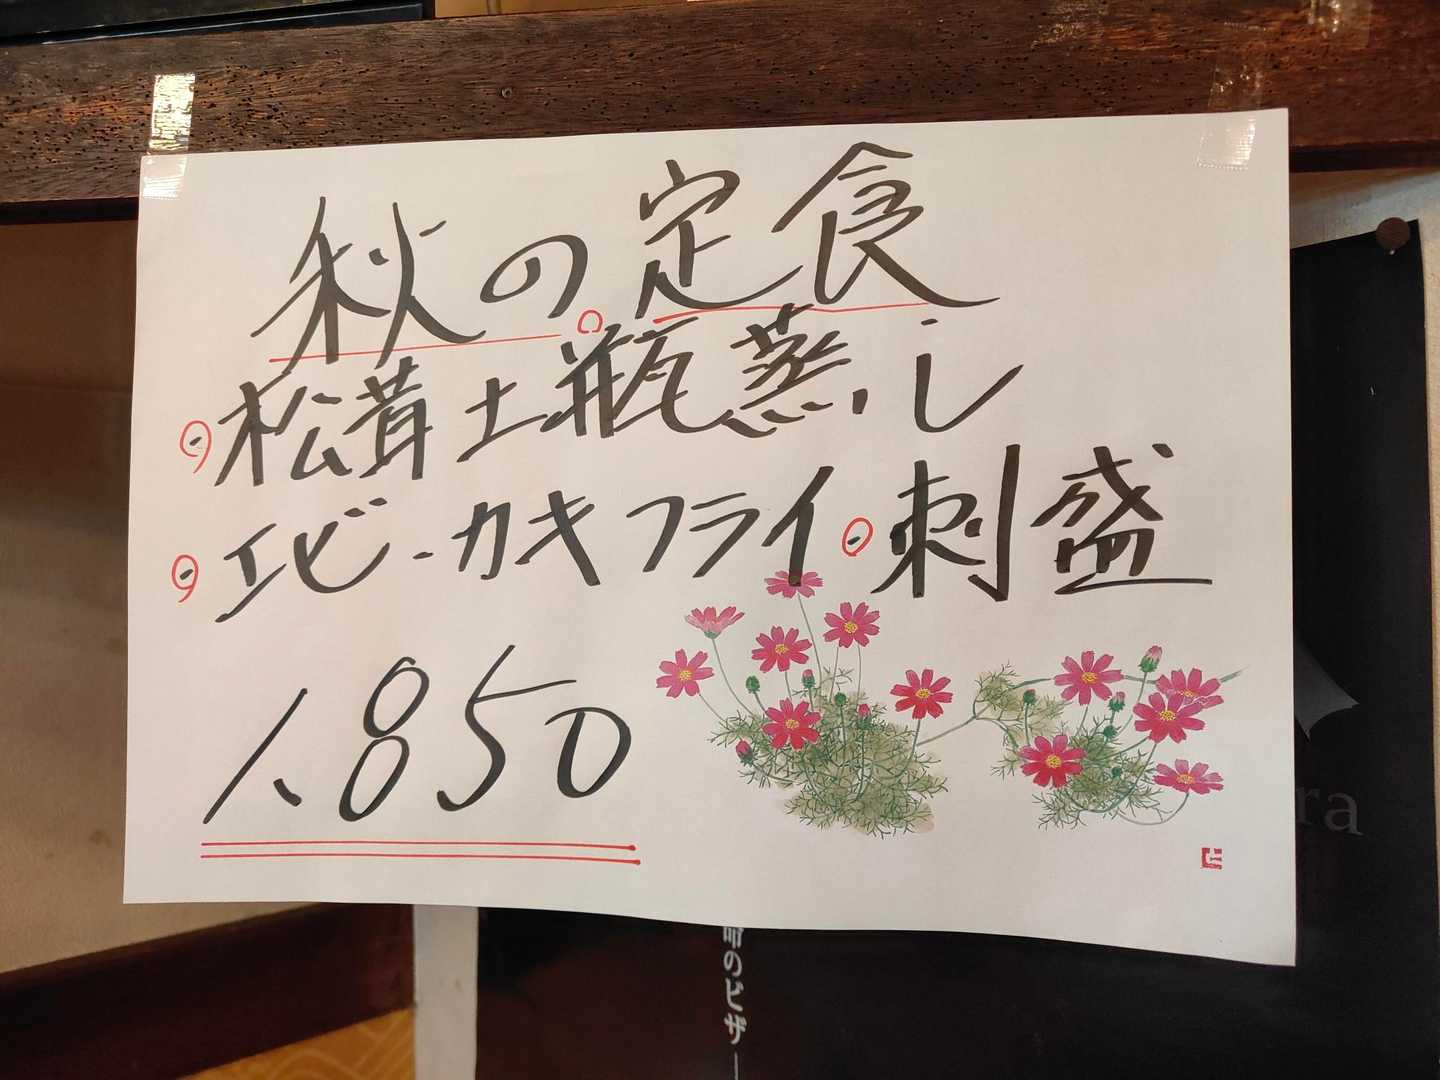 秋の定食
・松茸土瓶蒸し
・エビ・カキフライ・刺盛
1,850
ra
命のピザ